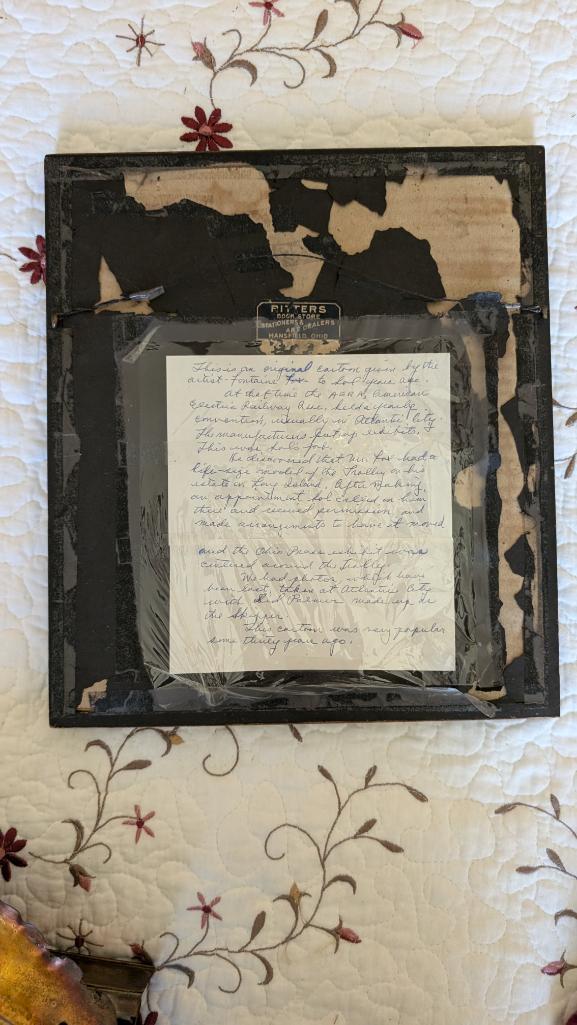 RITTERS
BOOK STORE
STATIONERS & DEALERS
ART
MANSFIELD, OHIO
This is an original cartoon given by the
artist - Fontaine Fox to Sol years ago.
At that time the AERA, American
Electric Railway Assc, held a yearly
convention, usually in Atlantic City.
The manufacturers put up exhibits.
This was Sol's job.
He discovered that Mr. Fox had a
life-size model of the Trolley on his
estate in Long Island. After making
an appointment Sol called on him
there and secured permission and
made arrangements to have it moved
and the Ohio Brass exhibit was
centered around the Trolley.
We had photos, which have
been lost, taken at Atlantic City
with Palmer made up as
the Skipper.
This cartoon was very popular
some thirty years ago.